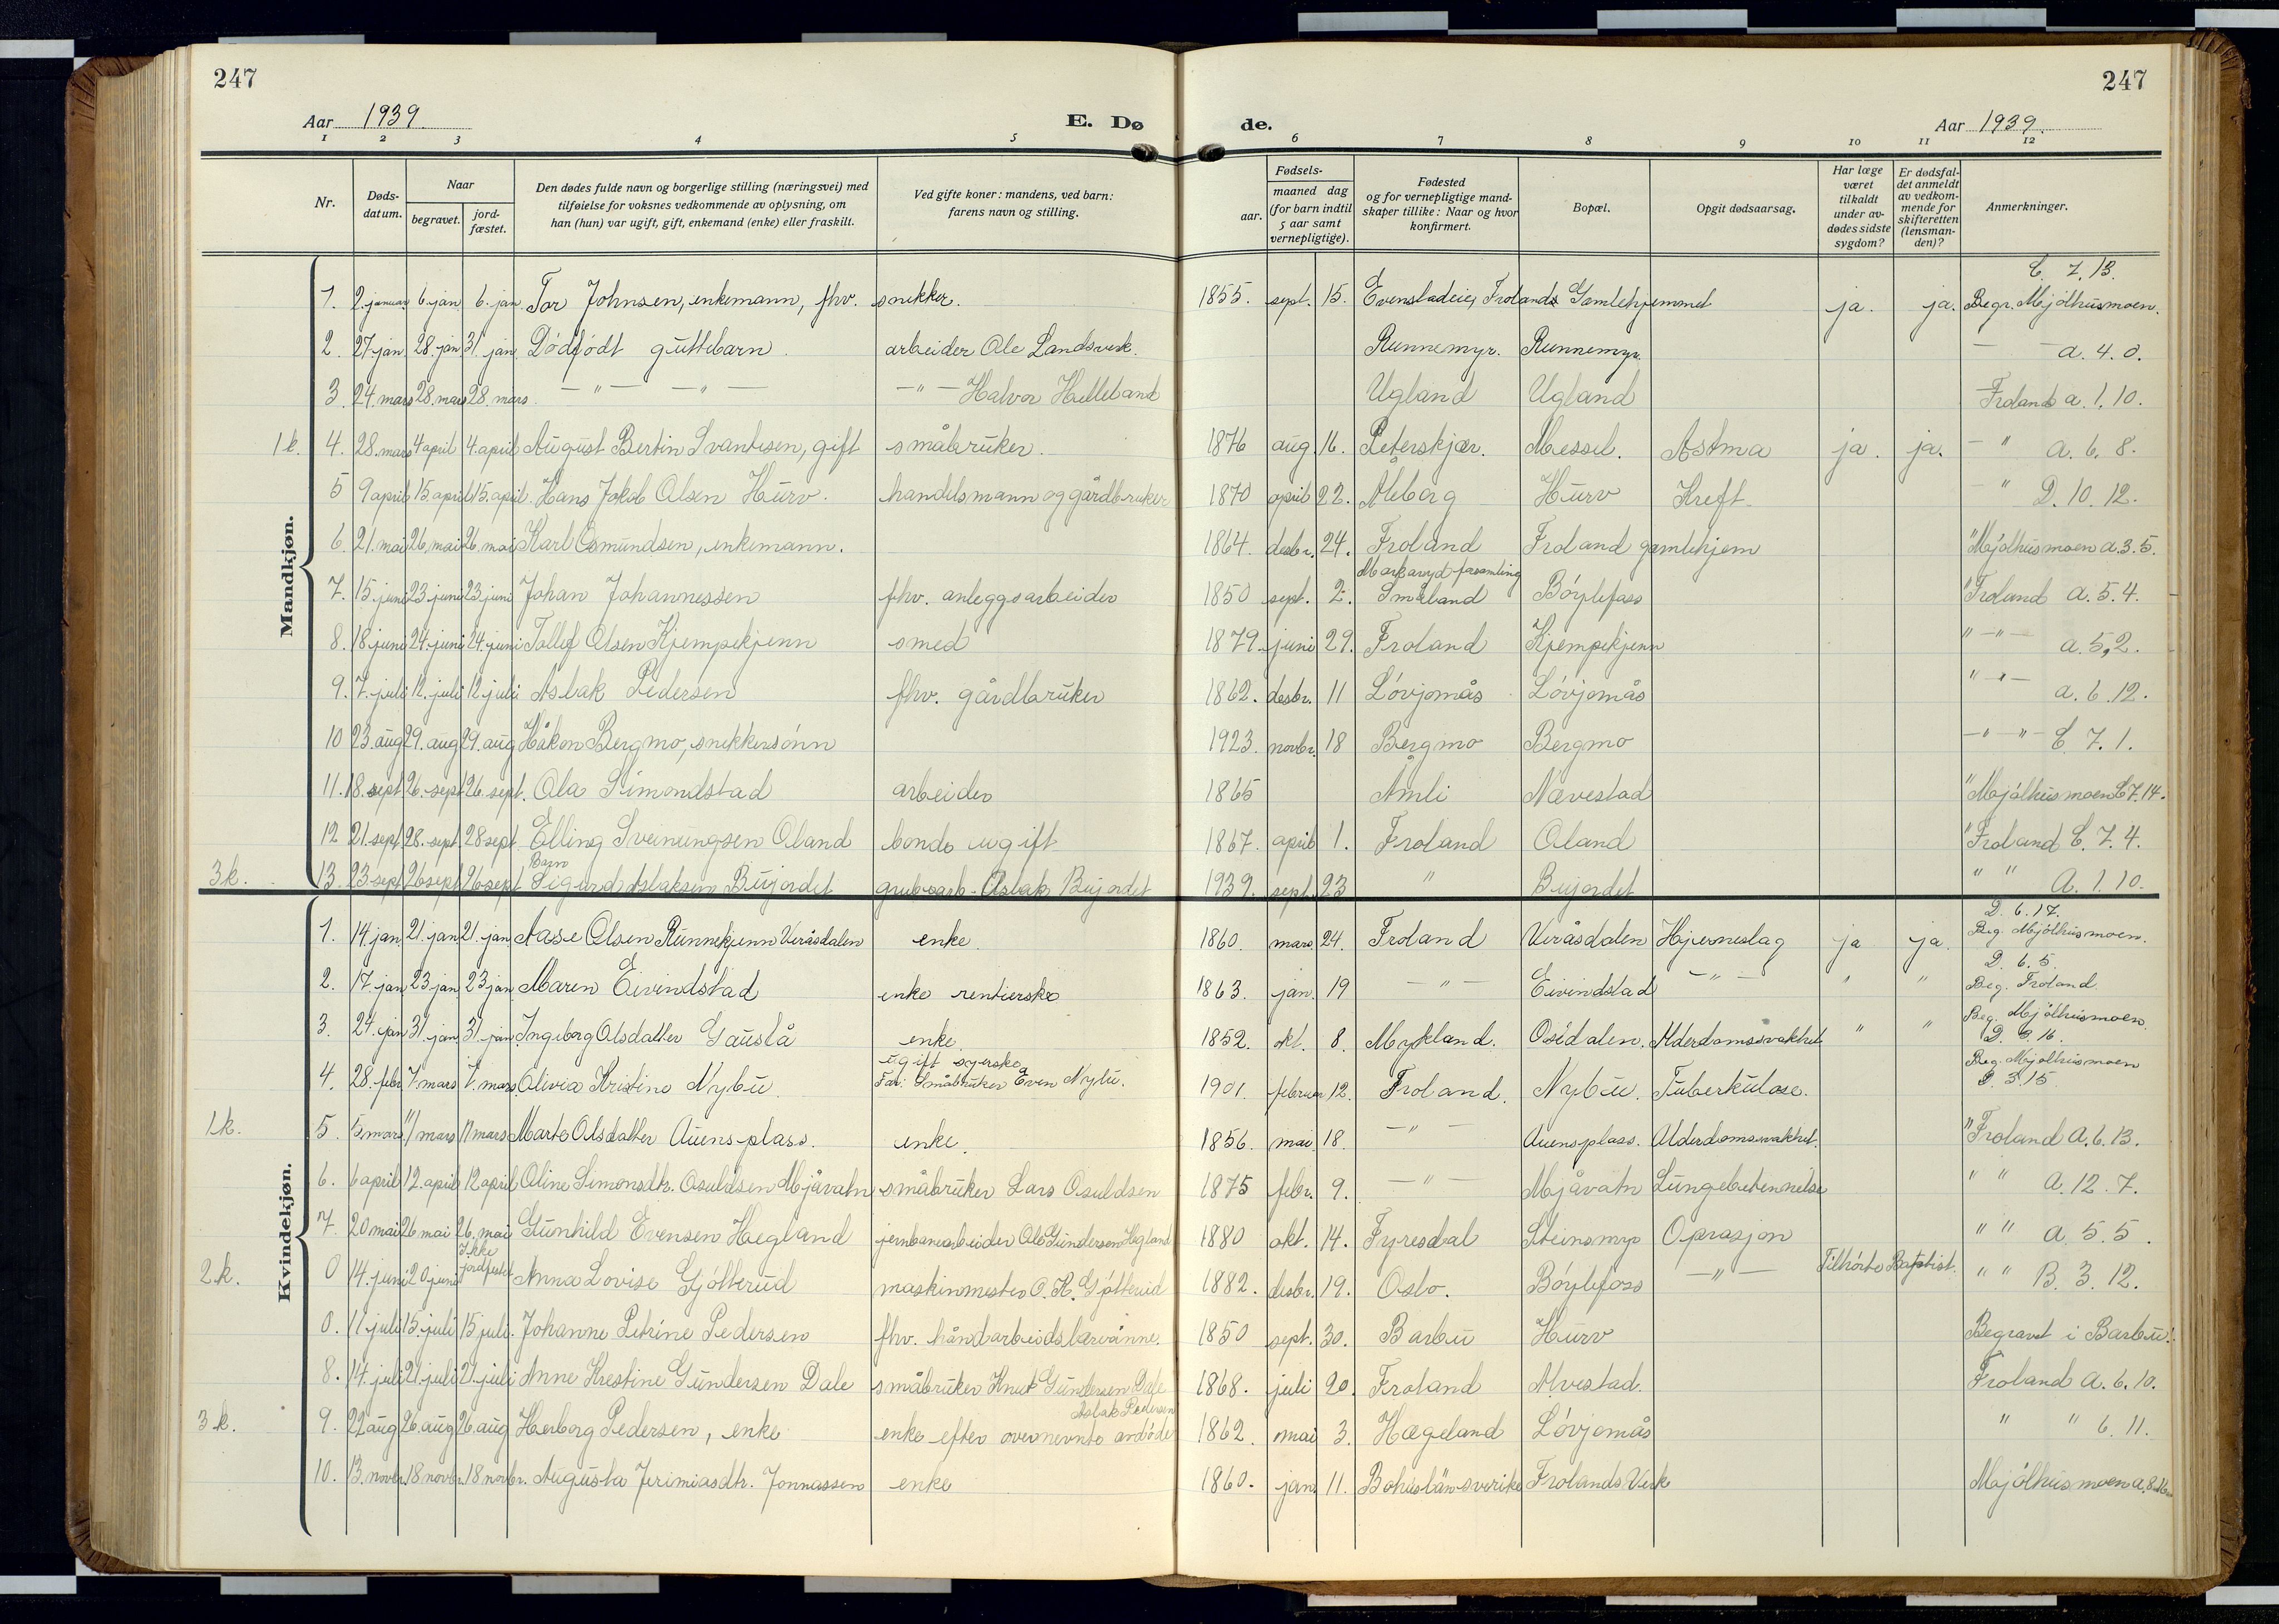 247
247
Aar 1939.
E. Dø
de.
Aar 1939.
1 2 3 4 5 6 7 8 9 10 11 12
Nr.
Døds-
datum.
Naar
begravet.
jord-
fæstet.
Den dødes fulde navn og borgerlige stilling (næringsvei) med
tilføielse for voksnes vedkommende av oplysning, om
han (hun) var ugift, gift, enkemand (enke) eller fraskilt.
Ved gifte koner: mandens, ved barn:
farens navn og stilling.
Fødsels-
aar.
maaned dag
(for barn indtil
5 aar samt
vernepligtige).
Fødested
og for vernepligtige mand-
skaper tillike: Naar og hvor
konfirmert.
Bopæl.
Opgit dødsaarsag.
Har læge
været
tilkaldt
under av-
dødes sidste
sygdom?
Er dødsfal-
det anmeldt
av vedkom-
mende for
skifteretten
(lensman-
den)?
Anmerkninger.
Mandkjøn.
1. 2. januar 6. jan 6. jan. Tor Johnsen, enkemann, fhv. snekker. 1855. sept. 15. Evenstadeie, Frolands Gamlehjemmet ja. ja. C. 7. 13. Begr. Mjölhusmoen.
2. 27 jan. 28. jan 31. jan. Dödfödt guttebarn. arbeider Ole Landsverk. Runnemyr. Runnemyr. — — a. 4. 0.
3. 24. mars 28. mars 28. mars — " — — " — — " — Halvor Helleland Ugland Ugland Froland a. 1. 10.
1 k. 4. 28. mars 4 april 4. april August Bertin Svantesen, gift småbruker. 1876 aug. 16. Peterskjær. Messel. Astma ja. ja. — " a. 6. 8.
5 9 april 15. april 15. april. Hans Jakob Olsen Hurv. handelsmann og gårdbruker 1870 april 22. Åleborg Hurv Kreft. — " D. 10. 12.
6. 21. mai 26. mai 26. mai Karl Osmundsen, enkemann. 1864. desbr. 24. Froland Froland gamlehjem " Mjölhusmoen a. 3. 5.
7. 15. juni 23. juni 23 juni Johan Johannessen fhv. anleggsarbeider 1850 sept. 2. Markaryd forsamling Småland Böylefoss " Froland a. 5. 4.
8. 18. juni 24. juni 24. juni Tollef Olsen Kjempekjenn smed 1879. juni 29. Froland Kjempekjenn " — " — a. 5, 2.
9. 7. juli 12. juli 12 juli Aslak Pedersen fhv. gårdbruker 1862. desbr. 11 Lövjomås Lövjomås " — " — a. 6. 12.
10 23. aug 29. aug 29. aug Håkon Bergmo, snekkersönn 1923. novbr. 18 Bergmo Bergmo — " — " — C. 7. 1.
11. 18. sept 26. sept 26. sept. Ola Simondstad arbeider 1865 Åmli Nævestad " Mjölhusmoen C 7. 14.
12 21. sept 28. sept. 28 sept Elling Sveinungsen Oland bonde ugift 1867. april 1. Froland Oland " Froland C. 7. 4.
3 k. 13. 23 sept 26 sept 26 sept Barn Sigurd Aslaksen Bujordet grubearb. Aslak Bujordet 1939. sept. 23 " Bujordet " " A. 1. 10.
Kvindekjøn.
1. 14. jan. 21. jan 21. jan Aase Olsen Runnekjenn Veråsdalen enke. 1860. mars 24. Froland Veråsdalen Hjerneslag ja ja. D. 6. 17. Beg. Mjölhusmoen.
2. 17. jan. 23 jan. 23 jan Maren Eivindstad enke rentierske 1863. jan. 19 — " — Eivindstad — " — " " D. 6. 5. Beg. Froland.
3. 24. jan 31. jan. 31. jan. Ingeborg Olsdatter Gauslå enke. 1852. okt. 8. Mykland. Osedalen. Alderdomssvakhet " " Beg. Mjölhusmoen. D. 8. 16.
4. 28. febr. 7. mars 7. mars Olivia Kristine Nybu. ugift syerske Far: Småbruker Even Nybu. 1901. februar 12. Froland. Nybu. Tuberkulose. Beg. Mjölhusmoen D. 3. 15.
1 k. 5. 5 mars 11 mars 11 mars Marte Olsdatter Auensplass. enke. 1856. mai 18. — " — Auensplass. Alderdomssvakhet. " Froland A. 6. 13.
6. 6 april 12. april 12 april Oline Simonsdtr. Osuldsen Mjåvatn småbruker Lars Osuldsen 1875 febr. 9. — " — Mjåvatn Lungebetennelse " " A. 12. 7.
7. 20 mai 26 mai 26. mai Gunhild Evensen Hegland jernbanearbeider Ole Gundersen Hegland 1880 okt. 14. Fyresdal Steinsmyr Oprasjon " " a. 5. 5.
2 k. 0 14. juni 20. juni Ikke jordfestet Anna Lovise Gjötterud maskinmester O. K. Gjötterud 1882. desbr. 19. Oslo. Böylefoss — " — Tilhörte Baptist. " " B. 3. 12.
0. 11 juli 15. juli 15 juli. Johanne Petrine Pedersen fhv. håndarbeidslærerinne. 1850 sept. 30. Barbu Hurv Begravet i Barbu.
8. 14. juli 21. juli 21. juli Anne Krestine Gundersen Dale småbruker Knut Gundersen Dale 1868. juli 20. Froland Alvestad. Froland A. 6. 10.
3 k. 9. 22 aug 26. aug 26. aug Herborg Pedersen, enke Aslak Pedersen enke efter overnevnte 1862. mai 3. Hægeland Lövjomås " " 6. 11.
10. 13. novbr. 18 novbr. 18 novbr. Augusta Jerimiasdtr. Jonnassen enke 1860. jan. 11. Bohuslän sverike Frolands Verk Mjölhusmoen a. 8.